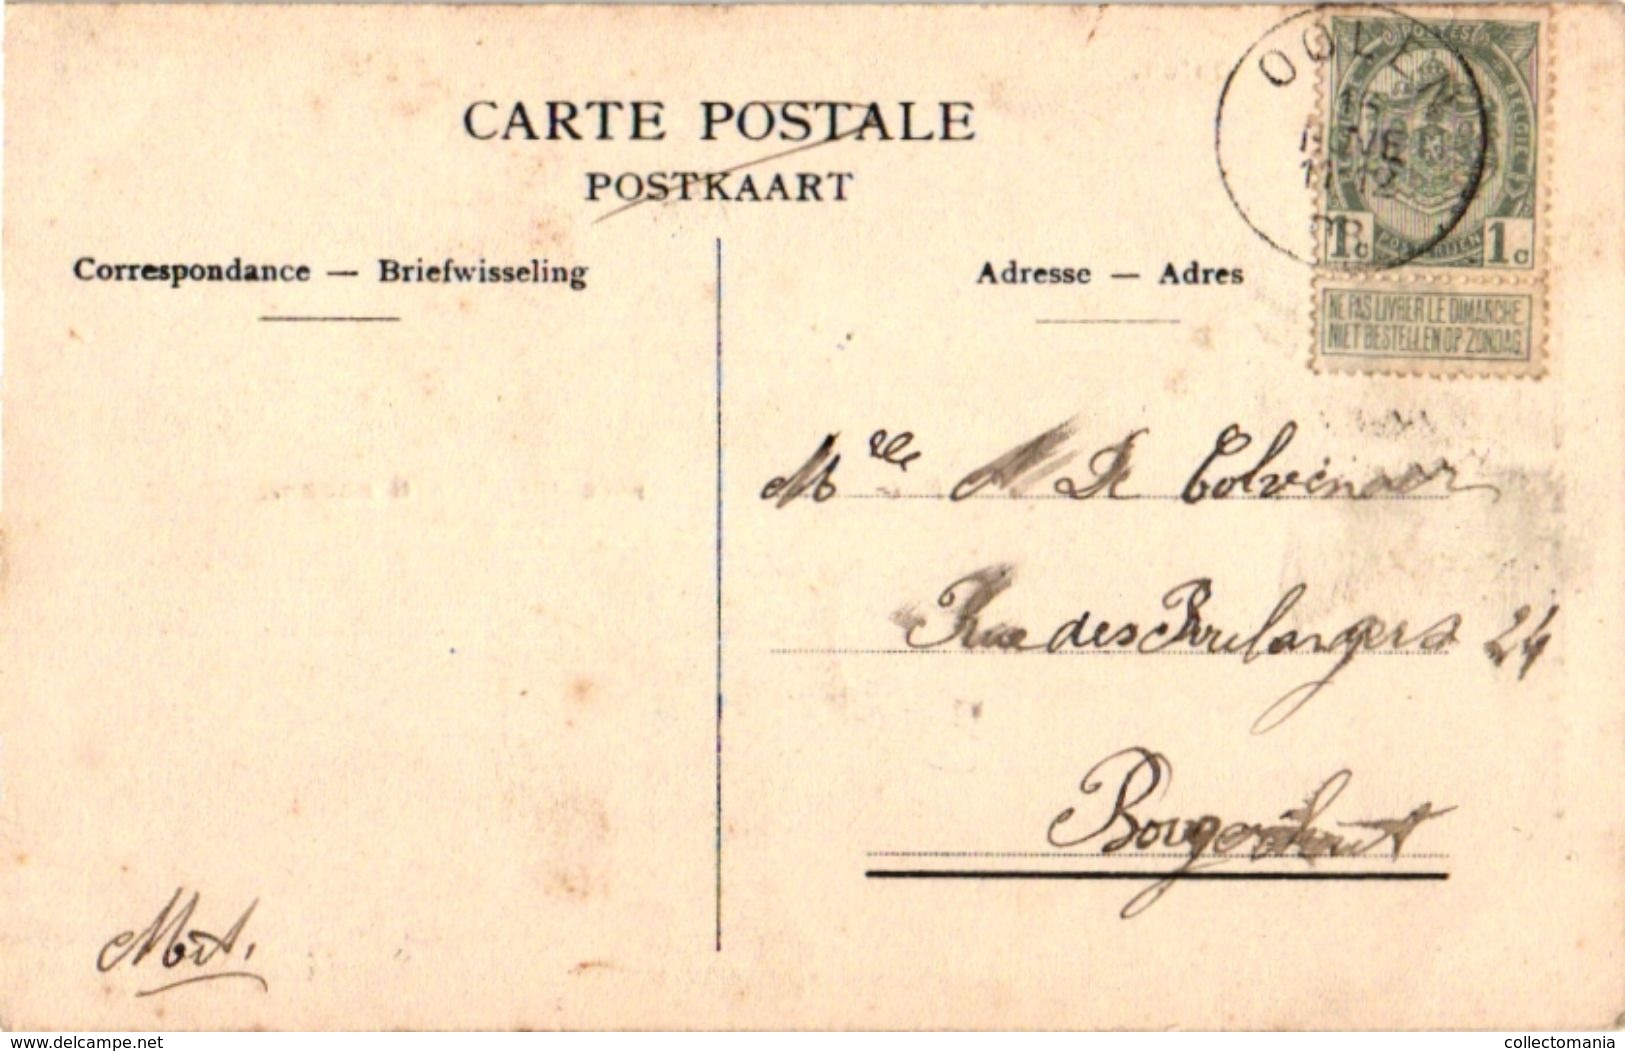 CARTE POSTALE
POSTKAART
Correspondance — Briefwisseling
Adresse — Adres
OOLEN
15
11-12
POSTES
BELGIE
1c 1c
POSTERIJEN
NE PAS LIVRER LE DIMANCHE
NIET BESTELLEN OP ZONDAG
Mlle De Colvenaer
Rue des Boulangers 24
Bougerhout
delcampe.net
collectomania